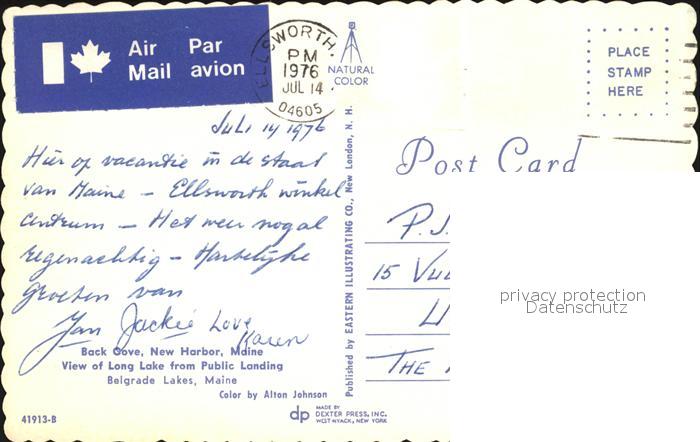 Air Par
Mail avion
ELLSWORTH,
PM
1976
JUL 14
04605
NATURAL
COLOR
PLACE
STAMP
HERE
Juli 14 1976
Hier op vacantie in de staat
van Maine – Ellsworth winkel
centrum – Het weer nogal
regenachtig – Hartelijke
groeten van
Jan Jackie Love
Karen
Back Cove, New Harbor, Maine
View of Long Lake from Public Landing
Belgrade Lakes, Maine
Color by Alton Johnson
41913-B
dp
MADE BY
DEXTER PRESS, INC.
WEST NYACK, NEW YORK
Published by EASTERN ILLUSTRATING CO., New London, N. H.
Post Card
P.J.
15
THE
privacy protection
Datenschutz